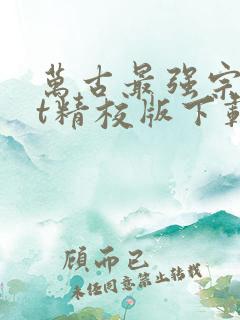 萬古最强宗
t精校版下載
顧而已
未經同意禁止轉載